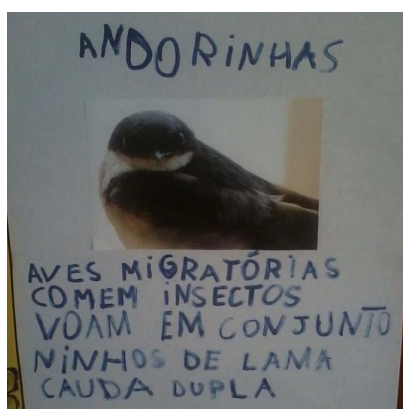 ANDORiNHAS
AVES MiGRATÓRiAS
COMEM iNSECTOS
VOAM EM CONJUNTO
NiNHOS DE LAMA
CAUDA DUPLA